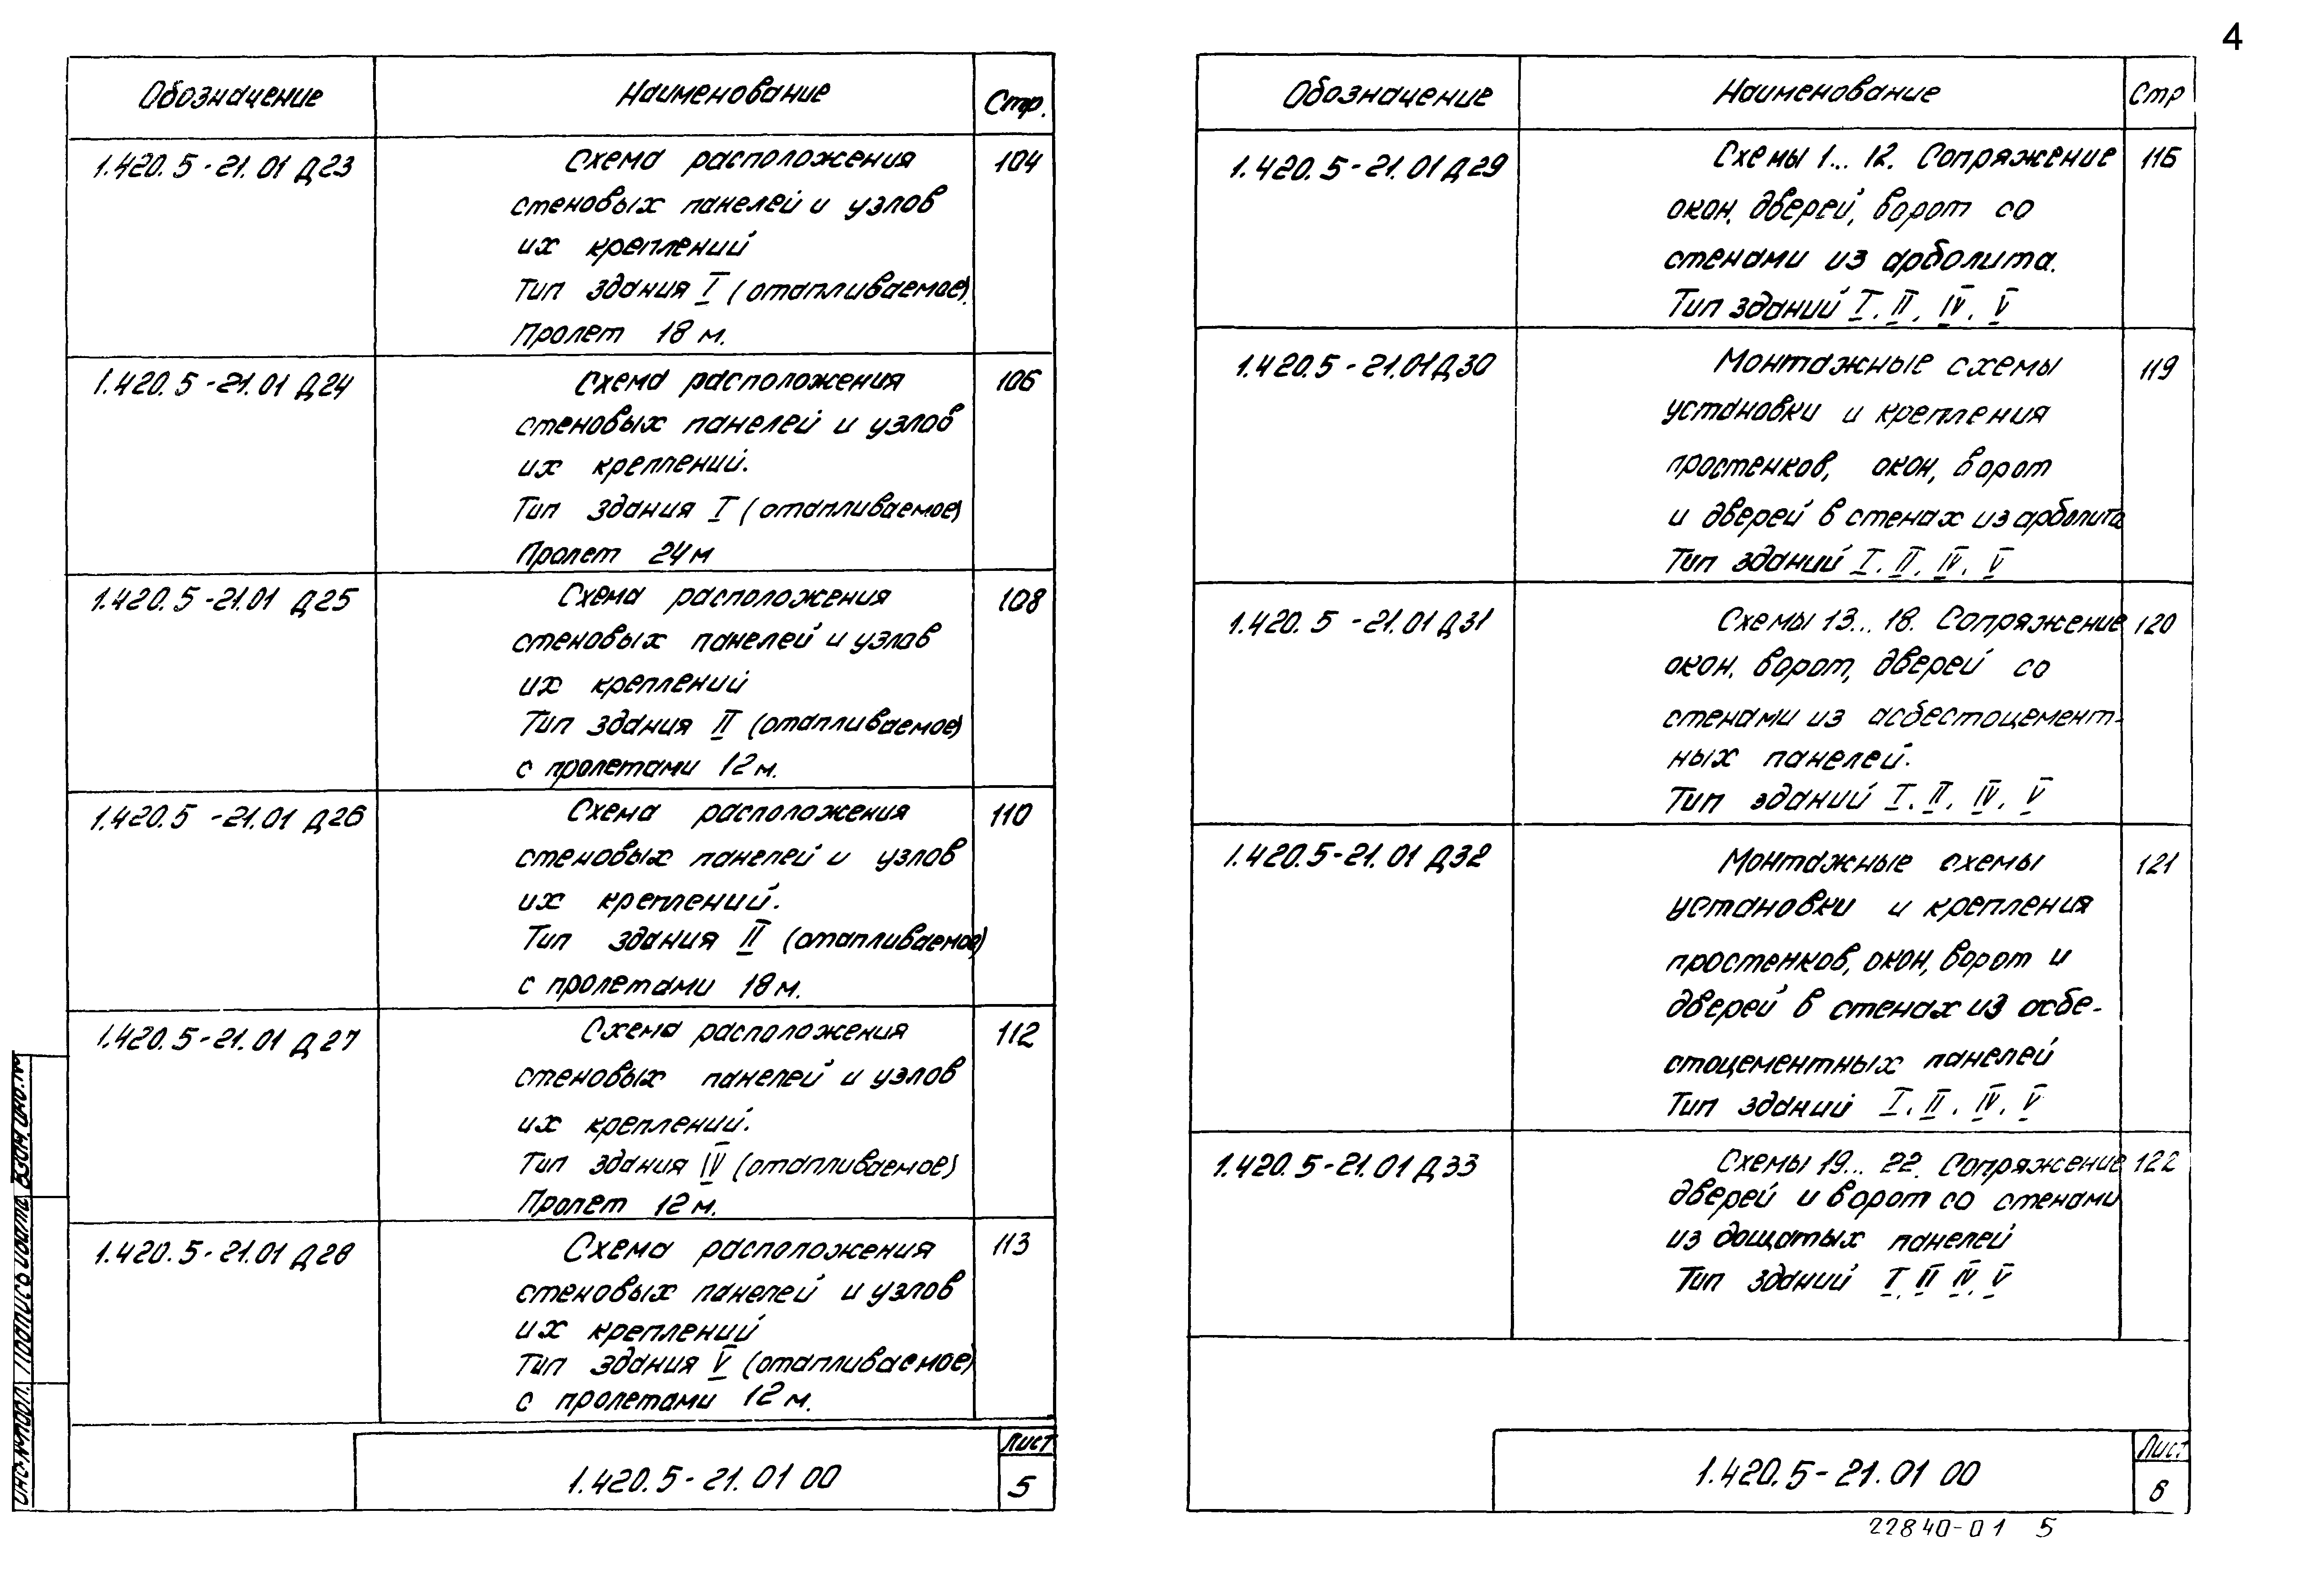 4
Обозначение Наименование Стр.
1.420.5-21.01 Д23 Схема расположения 104
стеновых панелей и узлов
их креплений
Тип здания I (отапливаемое).
Пролет 18 м.
1.420.5-21.01 Д24 Схема расположения 106
стеновых панелей и узлов
их креплений.
Тип здания I (отапливаемое)
Пролет 24м
1.420.5-21.01 Д25 Схема расположения 108
стеновых панелей и узлов
их креплений
Тип здания II (отапливаемое)
с пролетами 12 м.
1.420.5-21.01 Д26 Схема расположения 110
стеновых панелей и узлов
их креплений.
Тип здания II (отапливаемое)
с пролетами 18 м.
1.420.5-21.01 Д27 Схема расположения 112
стеновых панелей и узлов
их креплений.
Тип здания IV (отапливаемое)
Пролет 12 м.
1.420.5-21.01 Д28 Схема расположения 113
стеновых панелей и узлов
их креплений
Тип здания V (отапливаемое)
с пролетами 12 м.
1.420.5-21.01 00
Лист
5
Инв.№подл. Подпись и дата Взам.инв.№
Обозначение Наименование Стр
1.420.5-21.01 Д29 Схемы 1... 12. Сопряжение 116
окон, дверей, ворот со
стенами из арболита.
Тип зданий I, II, IV, V
1.420.5-21.01 Д30 Монтажные схемы 119
установки и крепления
простенков, окон, ворот
и дверей в стенах из арболита
Тип зданий I, II, IV, V
1.420.5-21.01 Д31 Схемы 13... 18. Сопряжение 120
окон, ворот, дверей со
стенами из асбестоцемент-
ных панелей.
Тип зданий I, II, IV, V
1.420.5-21.01 Д32 Монтажные схемы 121
установки и крепления
простенков, окон, ворот и
дверей в стенах из асбе-
стоцементных панелей
Тип зданий I, II, IV, V
1.420.5-21.01 Д33 Схемы 19... 22. Сопряжение 122
дверей и ворот со стенами
из дощатых панелей
Тип зданий I, II IV, V
1.420.5-21.01 00
Лист
6
22840-01 5